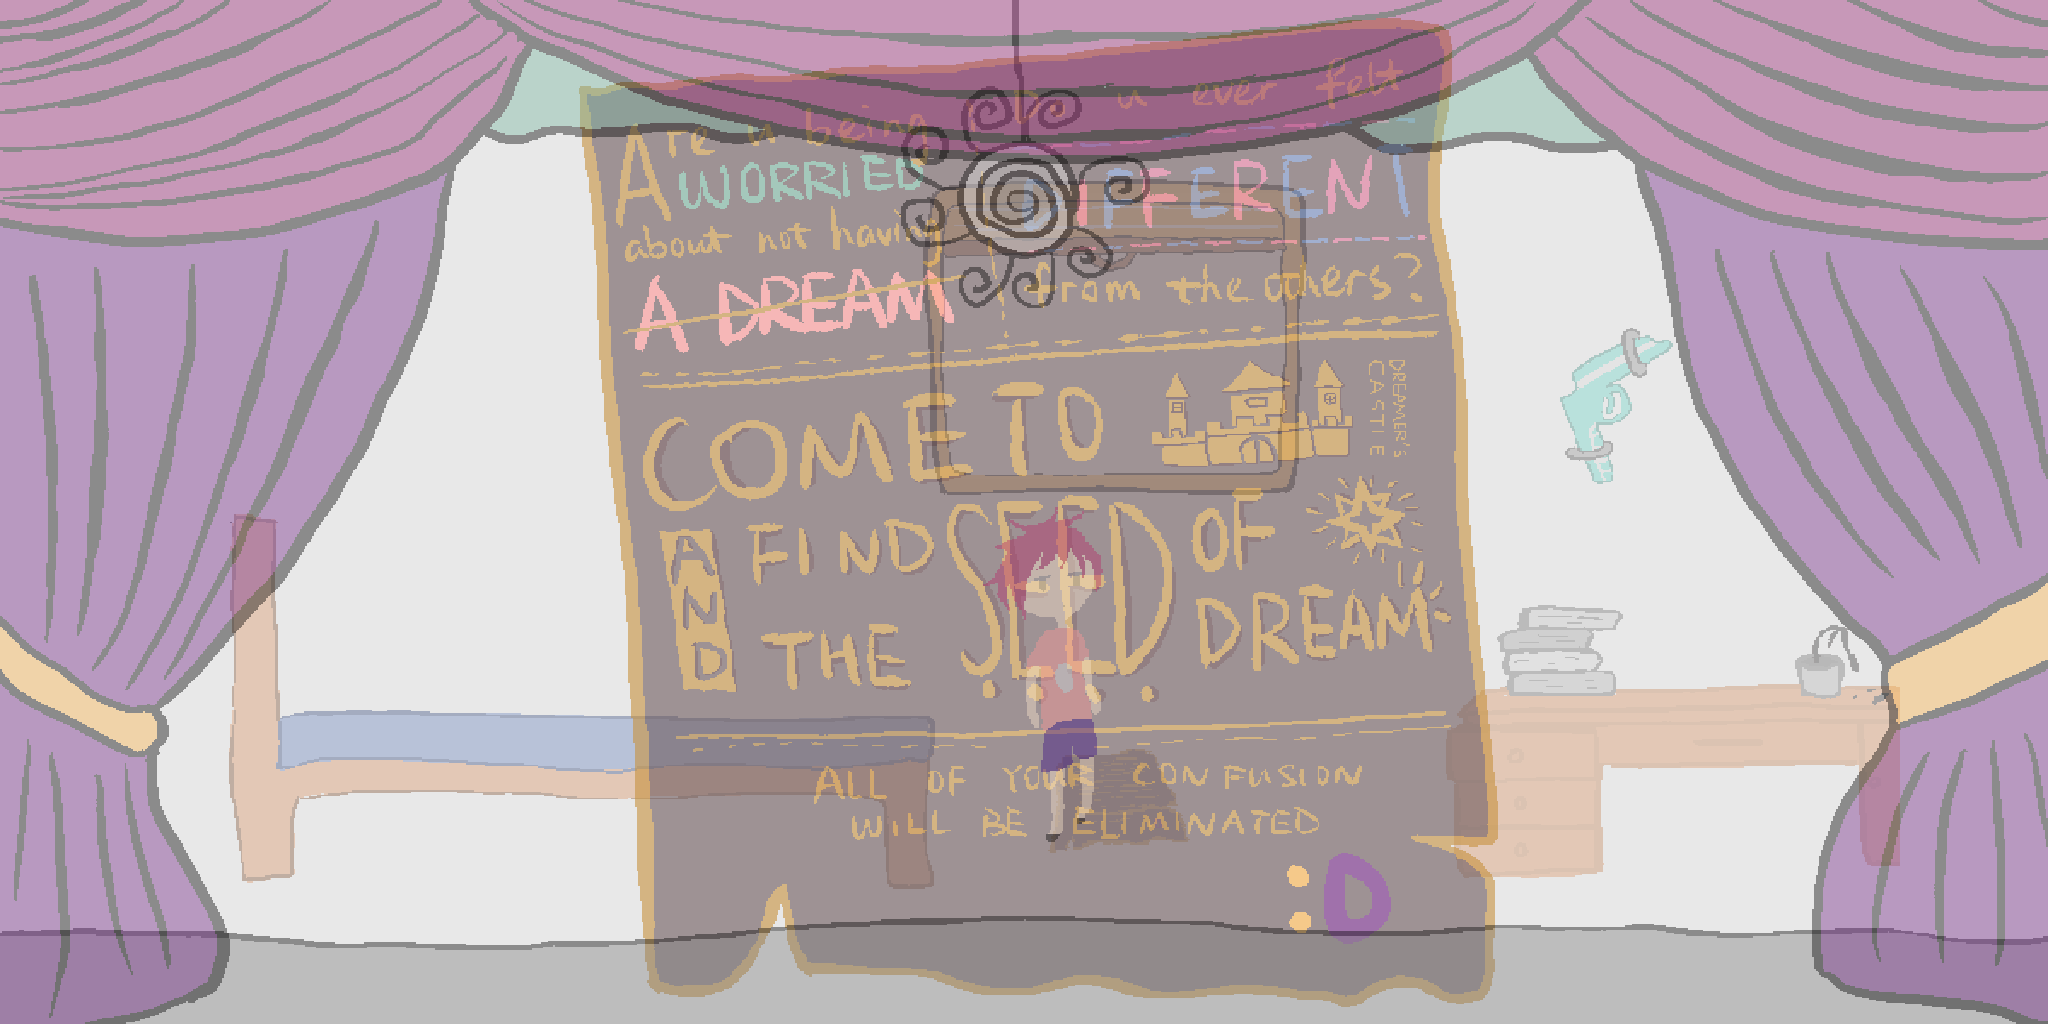 Are u being
WORRIED
about not having
A DREAM
u ever felt
DIFFERENT
from the others?
COME TO
DREAMER'S
CASTLE
AND
FIND
THE
SEED
OF
DREAM
ALL OF YOUR CONFUSION
WILL BE ELIMINATED
:D